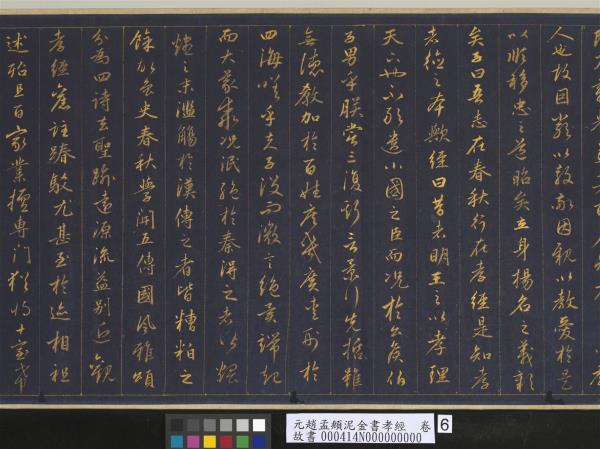 人也故因嚴以教敬因親以教愛於是
以順移忠之道昭矣立身揚名之義彰
矣子曰吾志在春秋行在孝經是知孝
者德之本歟經曰昔者明王之以孝理
天下也不敢遺小國之臣而況於公侯伯
子男乎朕嘗三復斯言景行先哲雖
無德教加於百姓庶幾廣愛刑於
四海嗟乎夫子沒而微言絕異端起
而大義乖況泯絕於秦得之者皆煨
燼之末濫觴於漢傳之者皆糟粕之
餘故魯史春秋學開五傳國風雅頌
分為四詩去聖踰遠源流益別近觀
孝經舊註踳駁尤甚至於迹相祖
述殆且百家業擅專門猶將十室希
元趙孟頫泥金書孝經 卷
故書000414N000000000
6